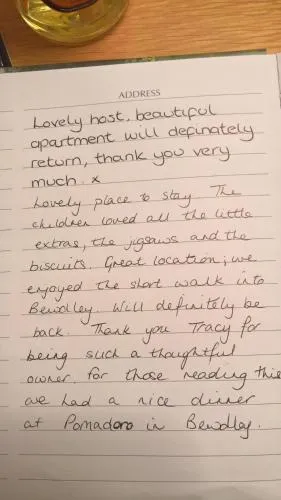 ADDRESS
Lovely host, beautiful
apartment will definately
return, thank you very
much. x
Lovely place to stay The
children loved all the little
extras, the jigsaws and the
biscuits. Great location; we
enjoyed the short walk into
Bewdley. Will definitely be
back. Thank you Tracy for
being such a thoughtful
owner. For those reading this
we had a nice dinner
at Pomadoro in Bewdley.